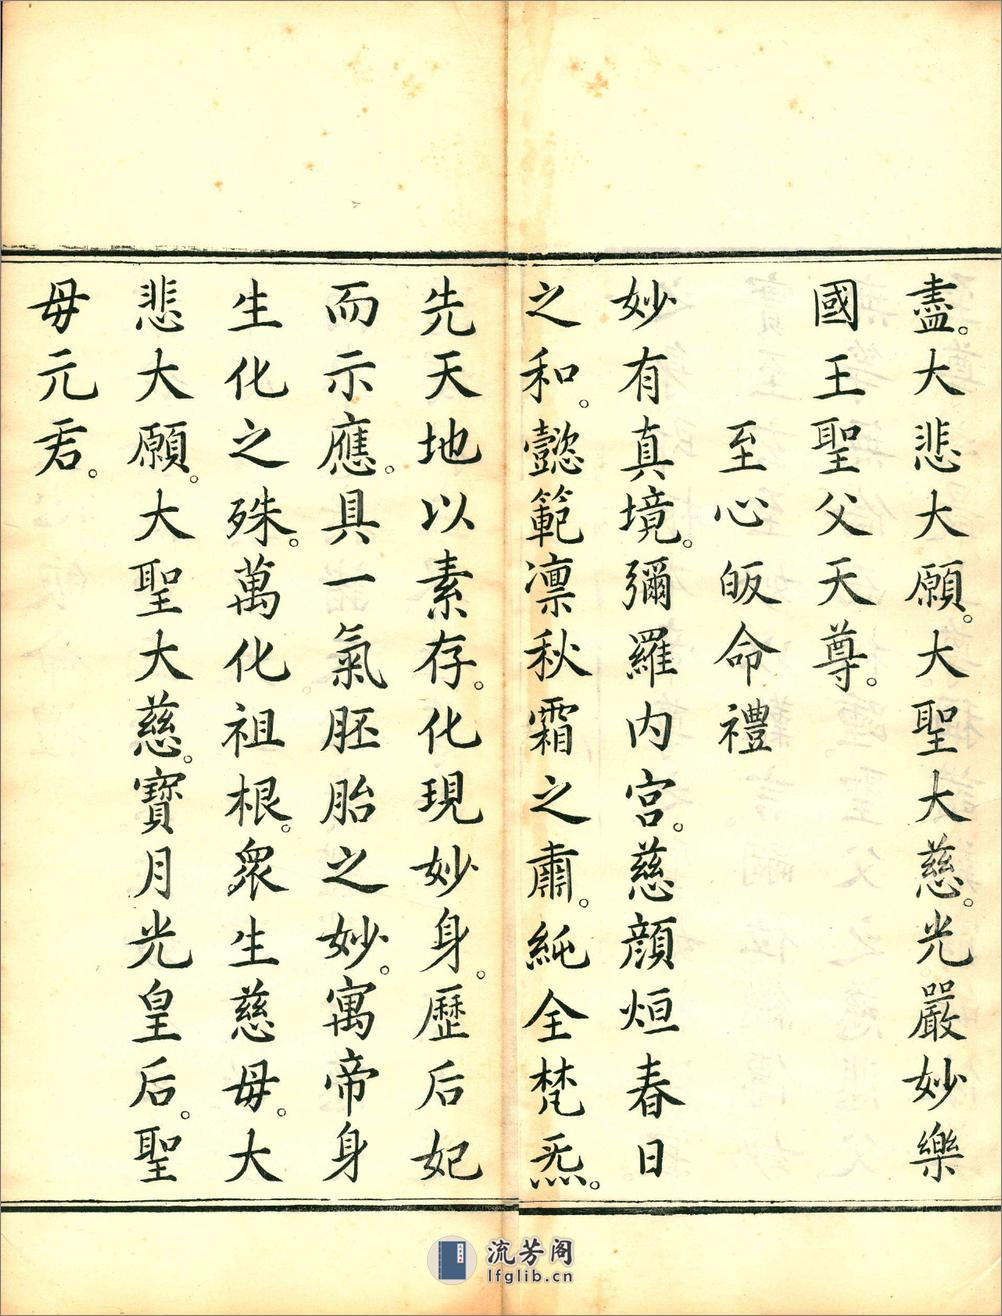 盡。大悲大願。大聖大慈。光嚴妙樂
國王聖父天尊。
至心皈命禮
妙有真境。彌羅內宮。慈顏烜春日
之和。懿範凛秋霜之肅。純全梵炁。
先天地以素存。化現妙身。歷后妃
而示應。具一氣胚胎之妙。寓帝身
生化之殊。萬化祖根。衆生慈母。大
悲大願。大聖大慈。寶月光皇后。聖
母元君。
流芳阁
lfglib.cn